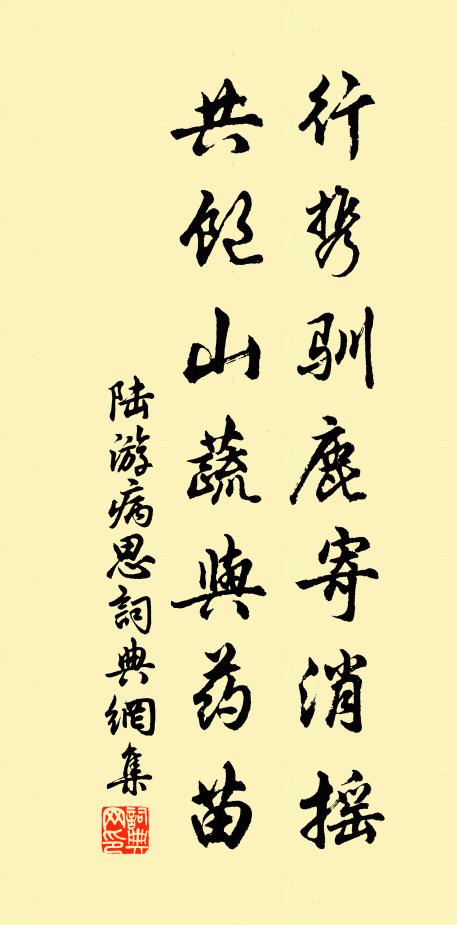 行携驯鹿寄消摇
共饱山蔬与药苗
陆游病思詞典網集
詞典网印